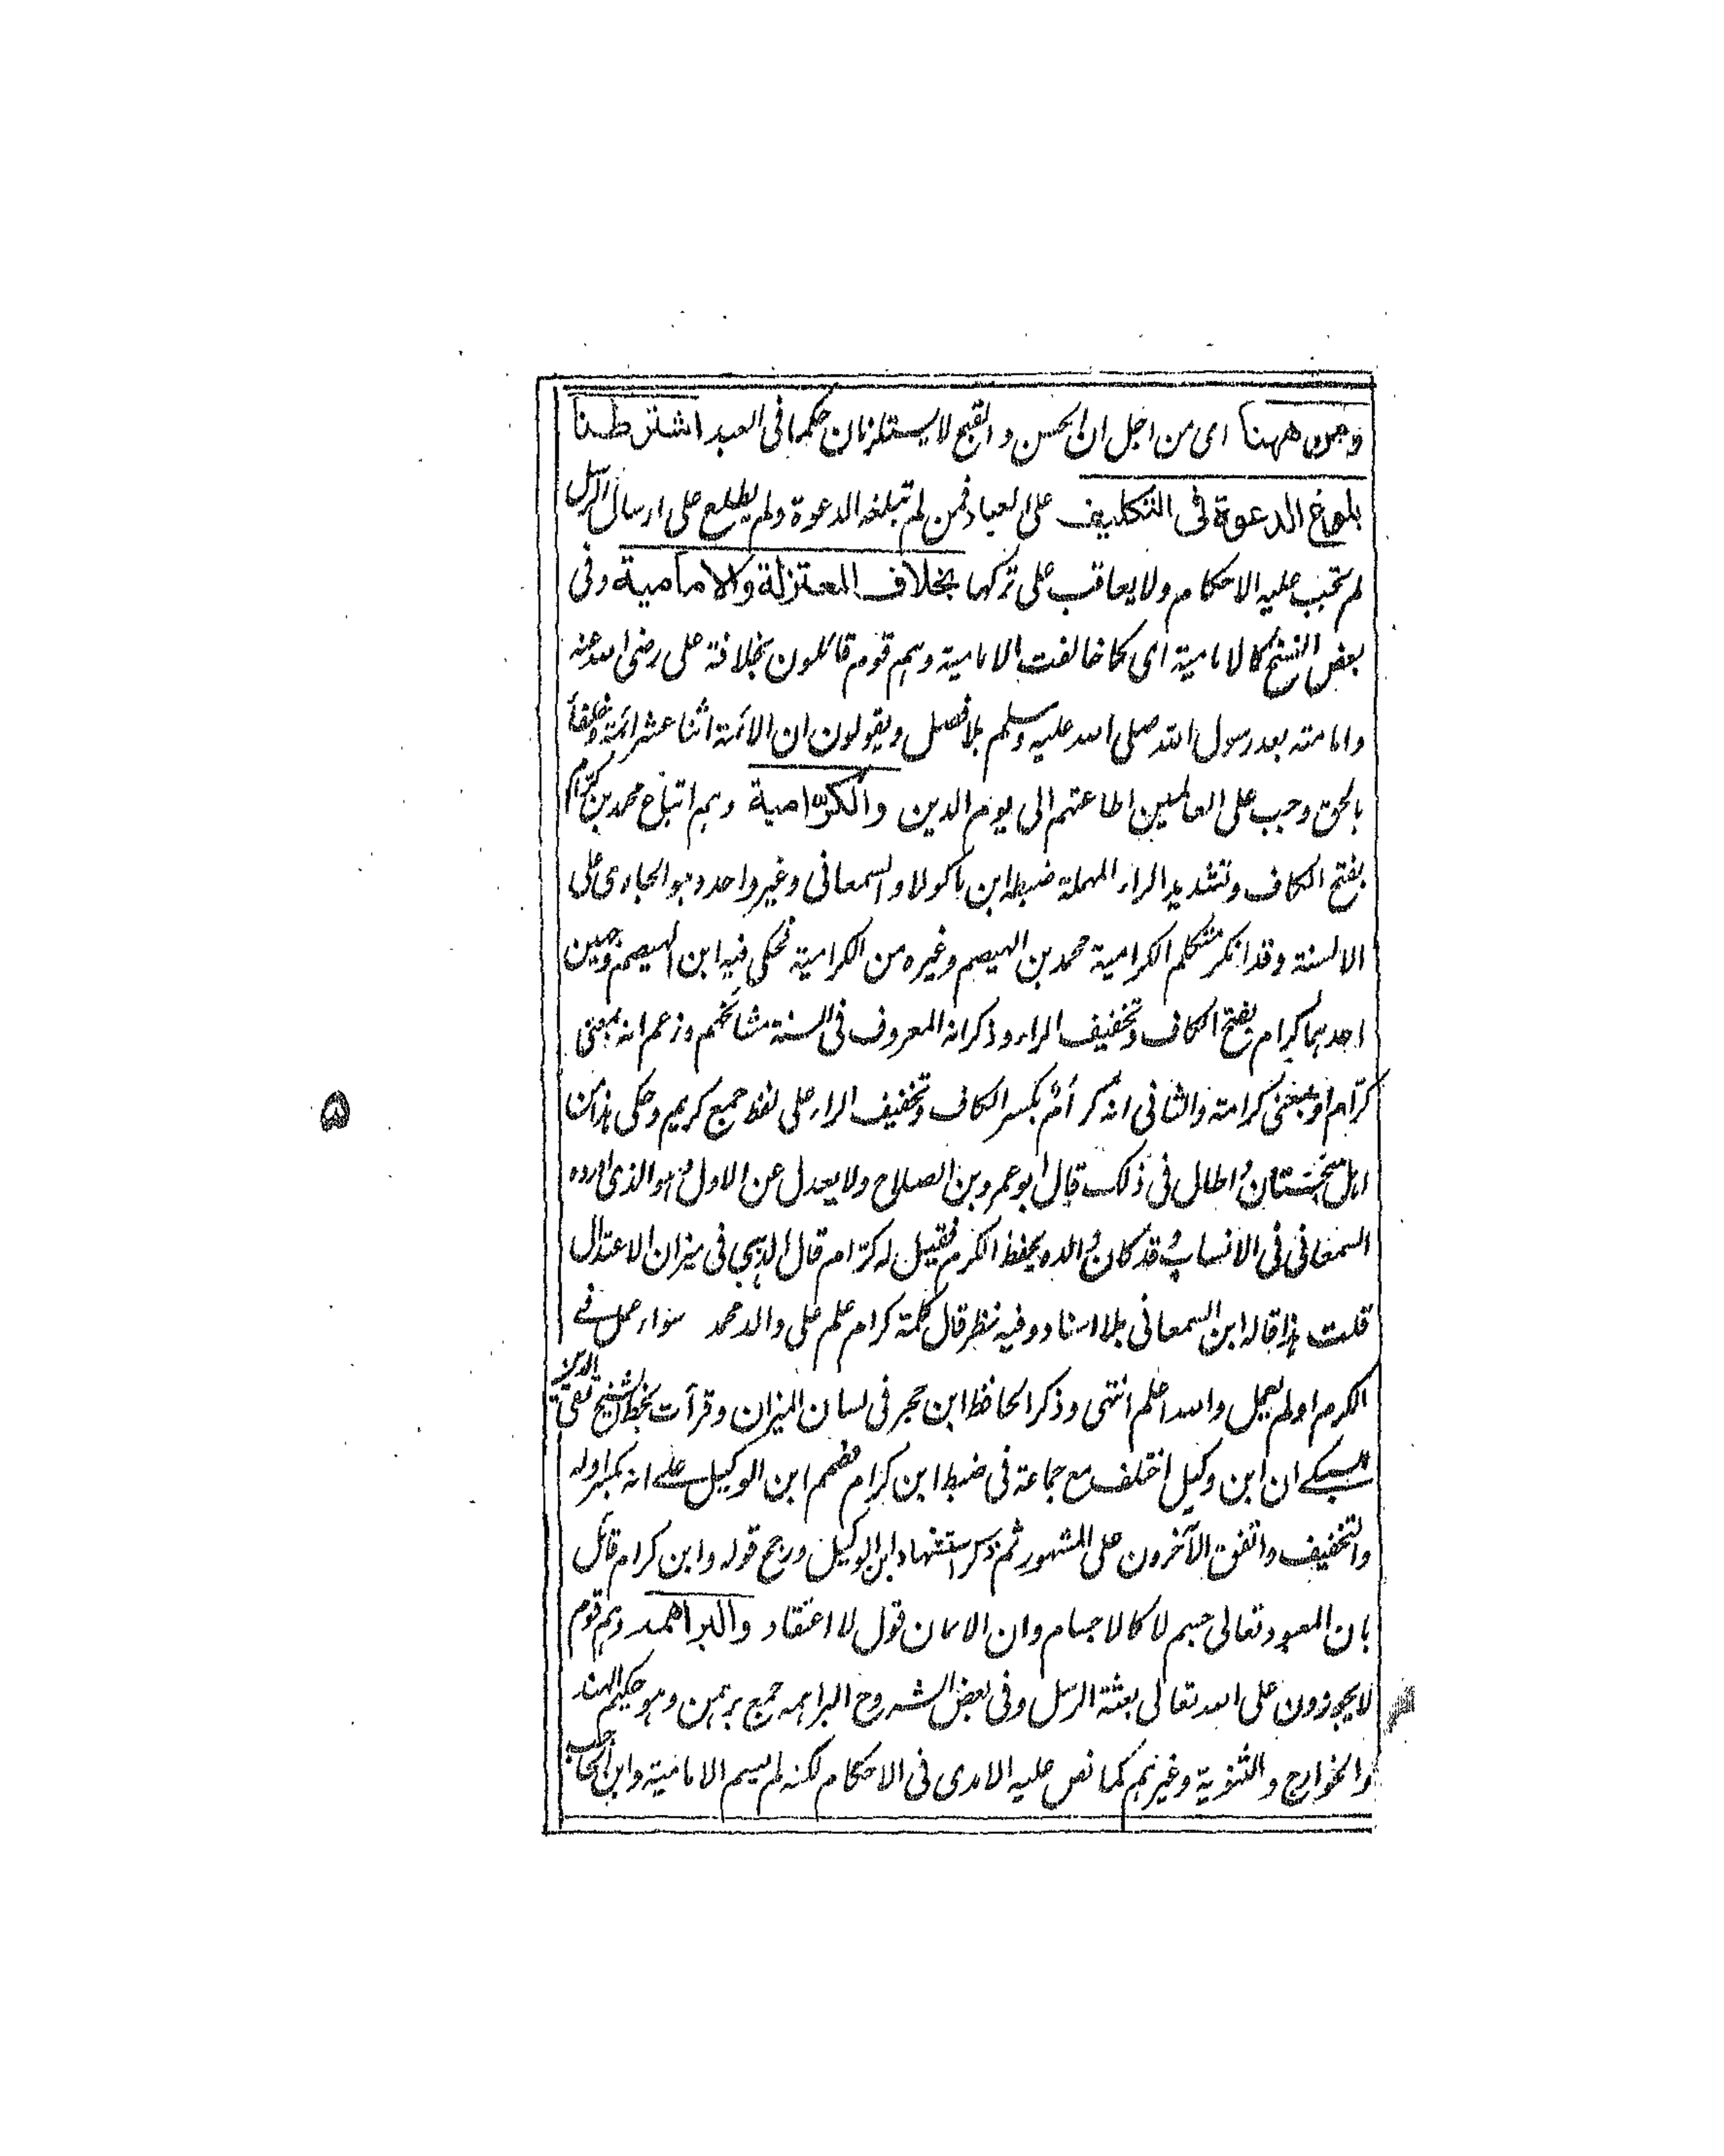 ومن ههنا اى من اجل ان الحسن والقبح لا يستلزمان حكما فى العبد اشترطنا
بلوغ الدعوة فى التكليف على العباد فمن لم تبلغه الدعوة ولم يطلع على ارسال الرسل
لم تجب عليه الاحكام ولا يعاقب على تركها بخلاف المعتزلة والامامية وفى
بعض النسخ كالامامية اى كما خالفت الامامية وهم قوم قائلون بخلافة على رضى الله عنه
وامامته بعد رسول الله صلى الله عليه وسلم بلا فصل ويقولون ان الائمة اثنا عشر ائمة وخلفاء
بالحق وجب على العالمين اطاعتهم الى يوم الدين والكرّامية وهم اتباع محمد بن كرّام
بفتح الكاف وتشديد الراء المهملة ضبطه ابن ماكولا والسمعانى وغير واحد وهو الجارى على
الالسنة وقد انكر متكلم الكرامية محمد بن الهيصم وغيره من الكرامية فحكى فيه ابن الهيصم وجهين
احدهما كرام بفتح الكاف وتخفيف الراء وذكر انه المعروف فى السنة مشائخهم وزعم انه بمعنى
كرّام او بمعنى كرامته والثانى انه كرام بكسر الكاف وتخفيف الراء على لفظ جمع كريم وحكى هذا من
اهل سجستان واطال فى ذلك قال ابو عمرو بن الصلاح ولا يعدل عن الاول وهو الذى اورده
السمعانى فى الانساب وقد كان والده يحفظ الكرم فقيل له كرّام قال الذهبى فى ميزان الاعتدال
قلت هذا قاله ابن السمعانى بلا اسناد وفيه نظر قال كلمة كرام علم على والد محمد سواء عمل فى
الكرم او لم يعمل والله اعلم انتهى وذكر الحافظ ابن حجر فى لسان الميزان وقرأت بخط الشيخ تقى الدين
السبكى ان ابن وكيل اختلف مع جماعة فى ضبط ابن كرام فصمم ابن الوكيل على انه بكسر اوله
والتخفيف واتفق الآخرون على المشهور ثم ذكر استشهاد ابن الوكيل ورجح قوله وابن كرام قائل
بان المعبود تعالى جسم لا كالاجسام وان الايمان قول لا اعتقاد والبراهمه وهم قوم
لا يجوزون على الله تعالى بعثة الرسل وفى بعض الشروح البراهمه جمع برهمن وهو حكيم الهند
والخوارج والثنوية وغيرهم كما نص عليه الامدى فى الاحكام لكنه لم يسم الامامية وابن الحاجب